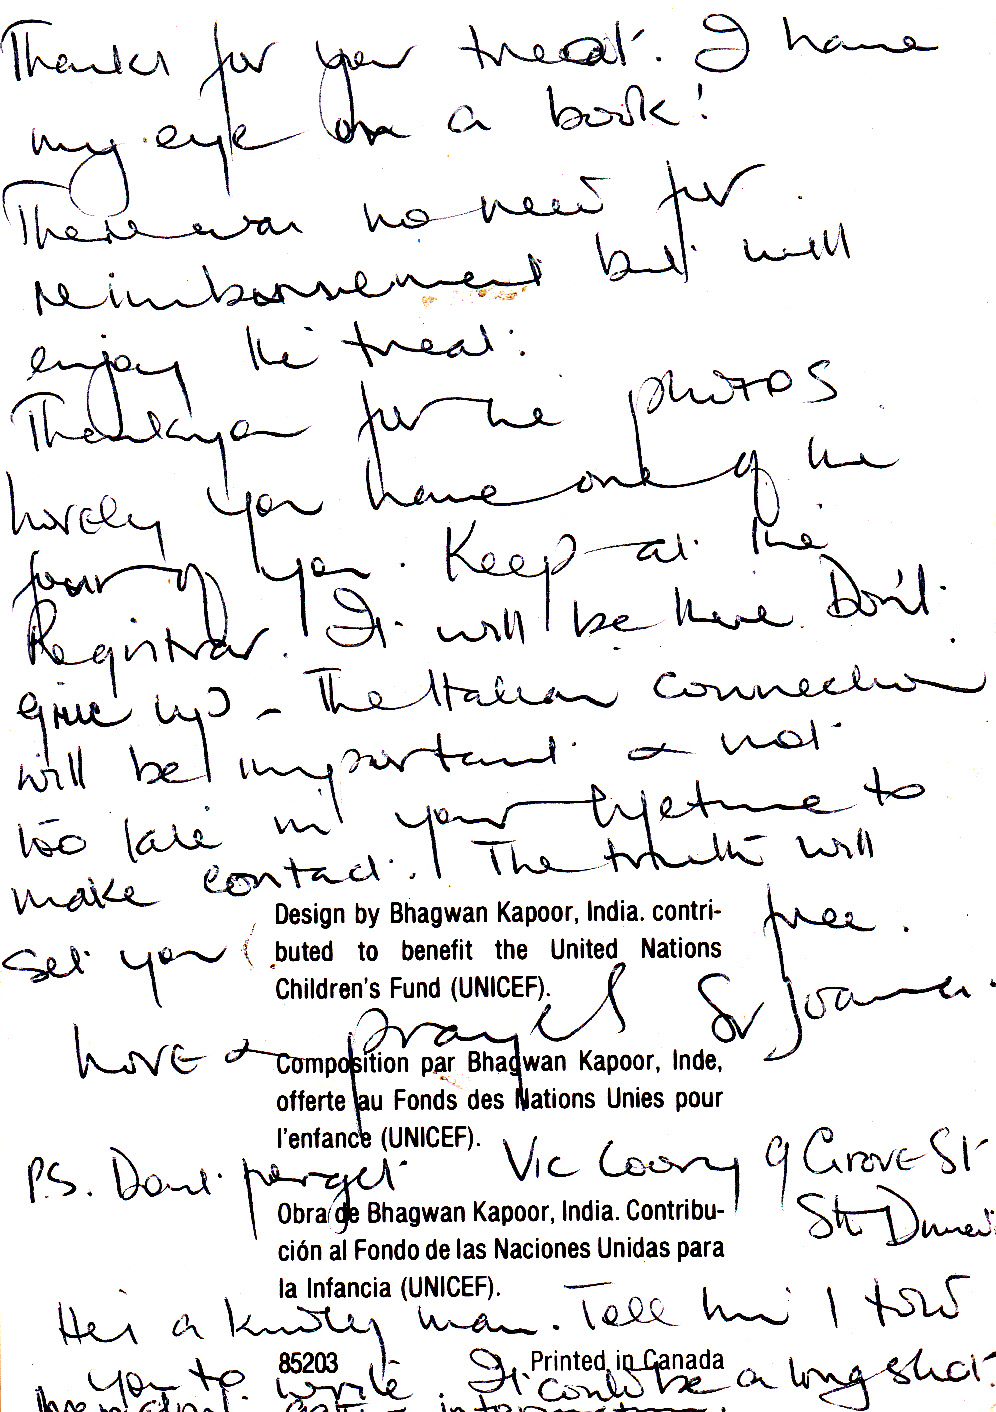 Thanks for your treat. I have
my eye on a book!
There was no need for
reimbursement but will
enjoy the treat.
Thankyou for the photos
lovely you have one of the
four of you. Keep at the
Registrar. It will be there. Don't
give up - The Italian connection
will be important & not
too late in your lifetime to
make contact. The truth will
set you free.
Design by Bhagwan Kapoor, India. contri-
buted to benefit the United Nations
Children's Fund (UNICEF).
Love & prayers Sr Joanna.
Composition par Bhagwan Kapoor, Inde,
offerte au Fonds des Nations Unies pour
l'enfance (UNICEF).
P.S. Dont forget Vic Coory 9 Grove St
Sth
Obra de Bhagwan Kapoor, India. Contribu-
ción al Fondo de las Naciones Unidas para
la Infancia (UNICEF).
He's a kindly man. Tell him I told
85203 Printed in Canada
you to write. It could be a long shot.